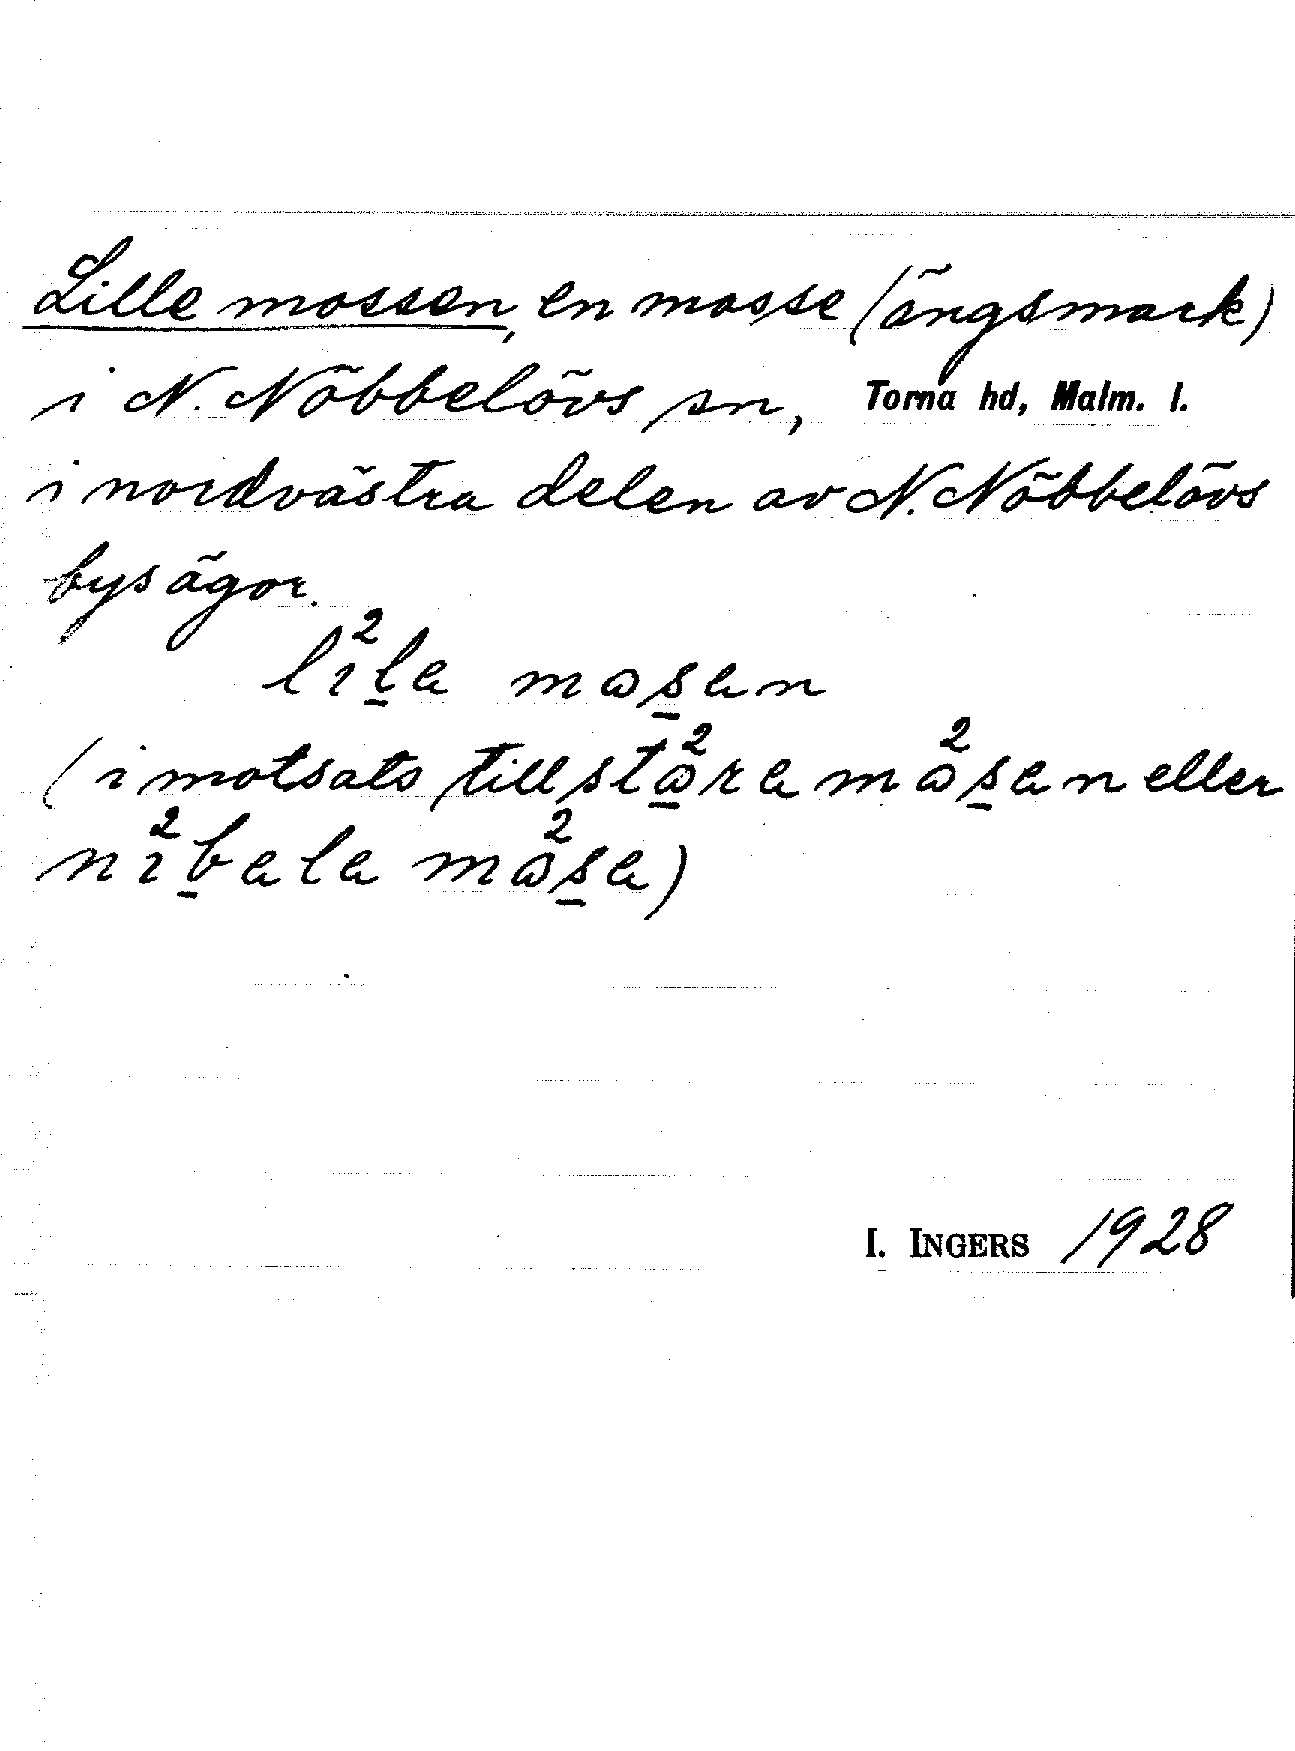 Lille mossen, en mosse (ängsmark)
i N. Nöbbelövs sn, Torna hd, Malm. l.
i nordvästra delen av N. Nöbbelövs
bys ägor.
lı²l̲a mɷs̲an
(i motsats till stɷ̲²ra mɷ²s̲an eller
nı²b̲ala mɷ²s̲a)
I. INGERS 1928